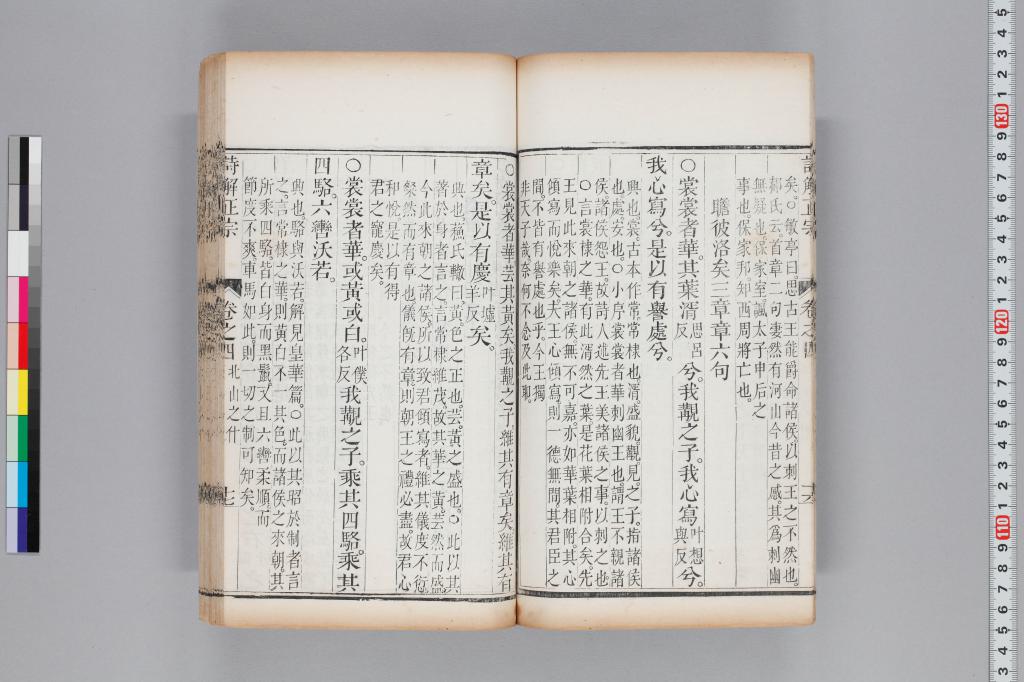 矣。○敏亭曰。思古王能爵命諸侯以刺王之不然也。
郝氏云。首章二句悽然有河山今昔之感。其爲刺幽
無疑也。保家室諷太子申后之
事也。保家邦知西周將亡也。
瞻彼洛矣三章章六句
○裳裳者華。其葉湑思呂反兮。我覯之子。我心寫叶想與反兮。
我心寫兮。是以有譽處兮。
興也。裳古本作常常棣也。湑盛貌。覯見。之子。指諸侯
也。處安也。○小序裳裳者華刺幽王也。謂王不親諸
侯諸侯怨王。故詩人述先王美諸侯之事以刺之也
○言裳棣之華。有此湑然之葉。是花葉相附合矣。先
王見此來朝之諸侯。無不可嘉。亦如華葉相附其心
傾寫而悅樂矣。夫王心傾寫。則一德無間。其君臣之
間。不皆有譽處也乎。今王獨
非天子哉。奈何不念及此耶。
○裳裳者華。芸其黃矣。我覯之子。維其有章矣。維其有
章矣。是以有慶叶墟羊反矣。
興也。蘇氏轍曰。黃色之正也。芸黃之盛也。○此以其
著於身者言之。言常棣維茂。故其華之黃。芸然而盛。
今此來朝之諸侯。所以致君傾寫者。維其儀度不愆
粲然而有章也。儀旣有章。則朝王之禮必盡。故君心
和悅。是以有得
君之寵慶矣。
○裳裳者華。或黃或白。叶僕各反我覯之子。乘其四駱。乘其
四駱。六轡沃若。
興也。駱與沃若。解見皇華篇。○此以其昭於制者言
之。言常棣之華。則黃白不一其色。而諸侯之來朝。其
所乘四駱。皆白身而黑鬣。又且六轡柔順。而
節度不爽。車馬如此。則一切之制可知矣。
詩解正宗 卷之四 北山之什